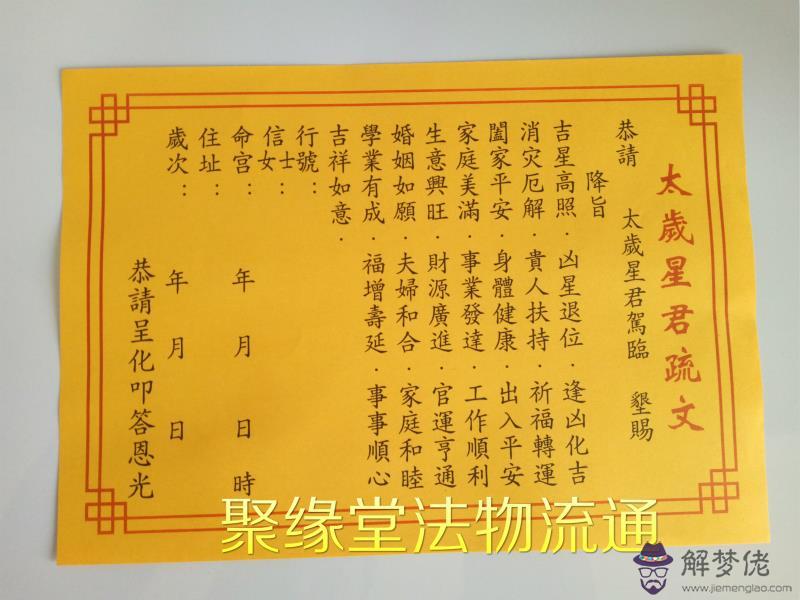 太歲星君疏文
恭請 太歲星君駕臨 墾賜
降旨
吉星高照．凶星退位．逢凶化吉
消灾厄解．貴人扶持．祈福轉運
闔家平安．身體健康．出入平安
家庭美滿．事業發達．工作順利
生意興旺．財源廣進．官運亨通
婚姻如願．夫婦和合．家庭和睦
學業有成．福增壽延．事事順心
吉祥如意．
行號：
信士女：
命宫： 年 月 日 時
住址：
歲次： 年 月 日
恭請呈化叩答恩光
聚缘堂法物流通
解梦佬
www.jiemenglao.com